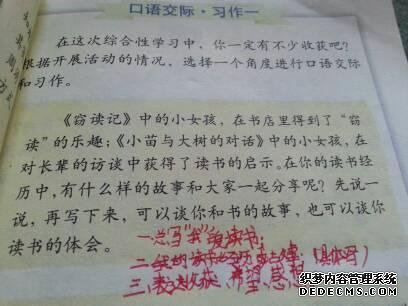 口语交际·习作一
在这次综合性学习中，你一定有不少收获吧？
根据开展活动的情况，选择一个角度进行口语交际
和习作。
《窃读记》中的小女孩，在书店里得到了“窃
读”的乐趣；《小苗与大树的对话》中的小女孩，在
对长辈的访谈中获得了读书的启示。在你的读书经
历中，有什么样的故事和大家一起分享呢？先说一
说，再写下来，可以谈你和书的故事，也可以谈你
读书的体会。
一总写“我”爱读书；
二我的读书经历或故事：（具体写）
三、表达收获、希望、感想
织梦内容管理系统